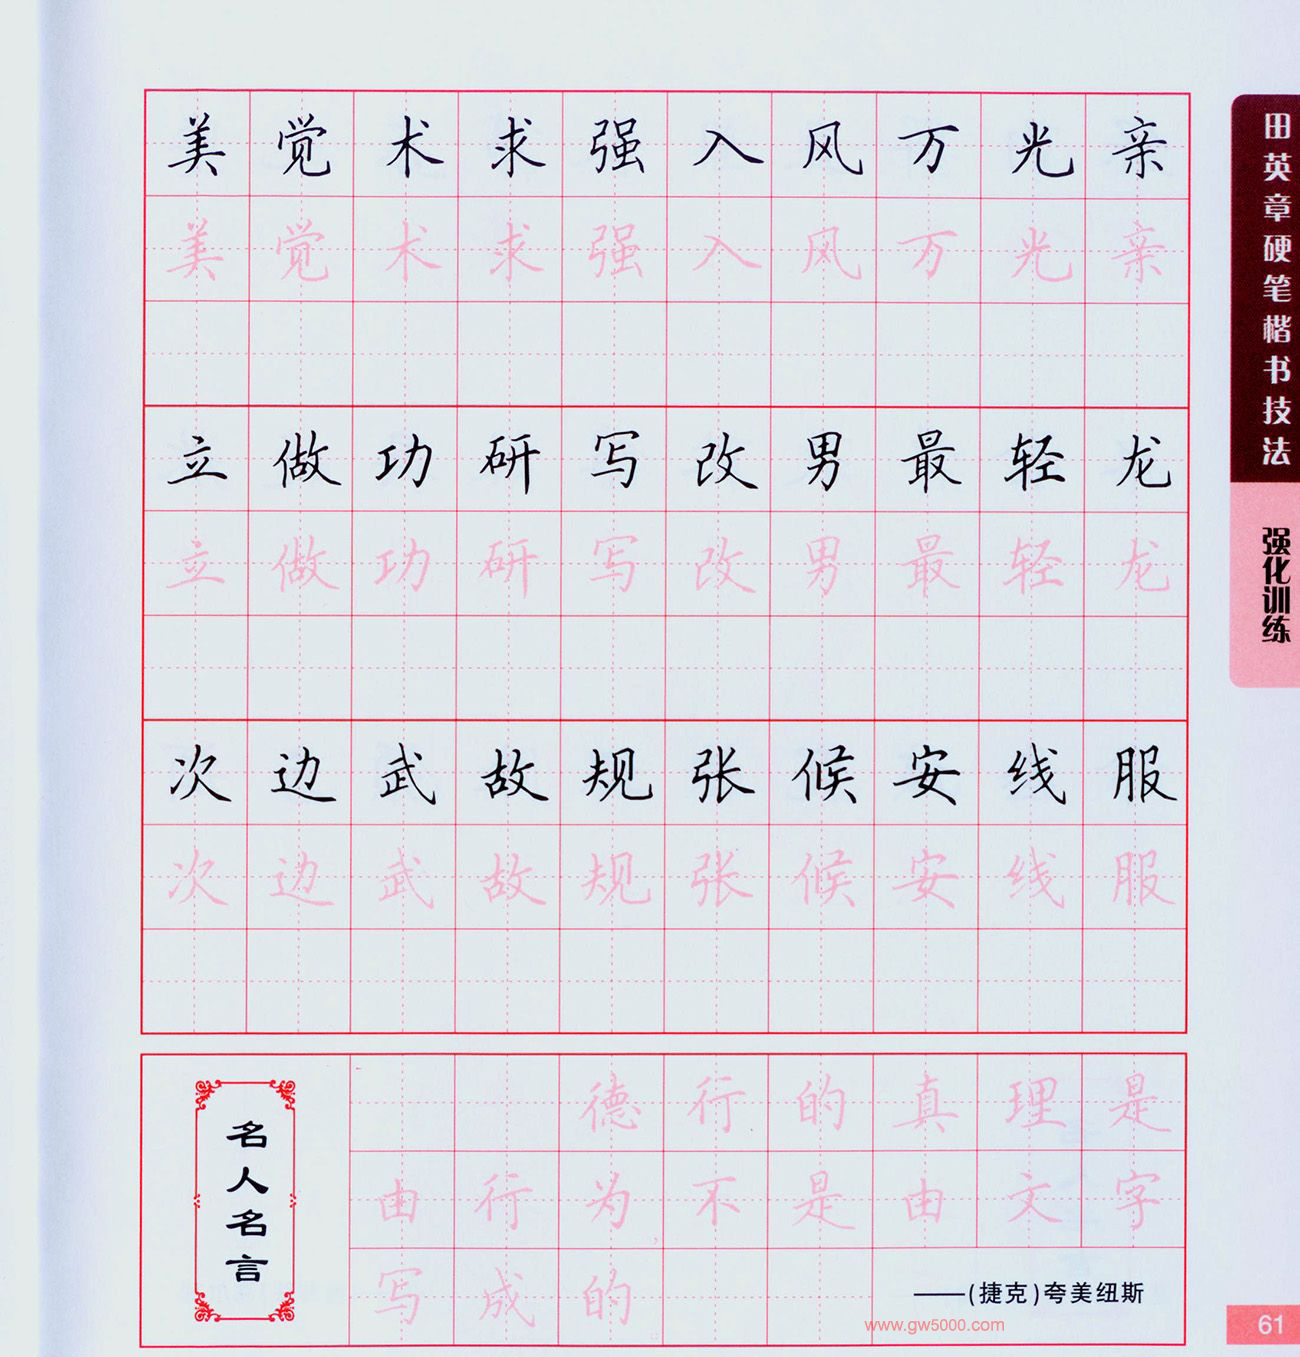 美觉术求强入风万光亲
美觉术求强入风万光亲
立做功研写改男最轻龙
立做功研写改男最轻龙
次边武故规张候安线服
次边武故规张候安线服
名人名言
德行的真理是
由行为,不是由文字
写成的。
——(捷克)夸美纽斯
www.gw5000.com
田英章硬笔楷书技法
强化训练
61